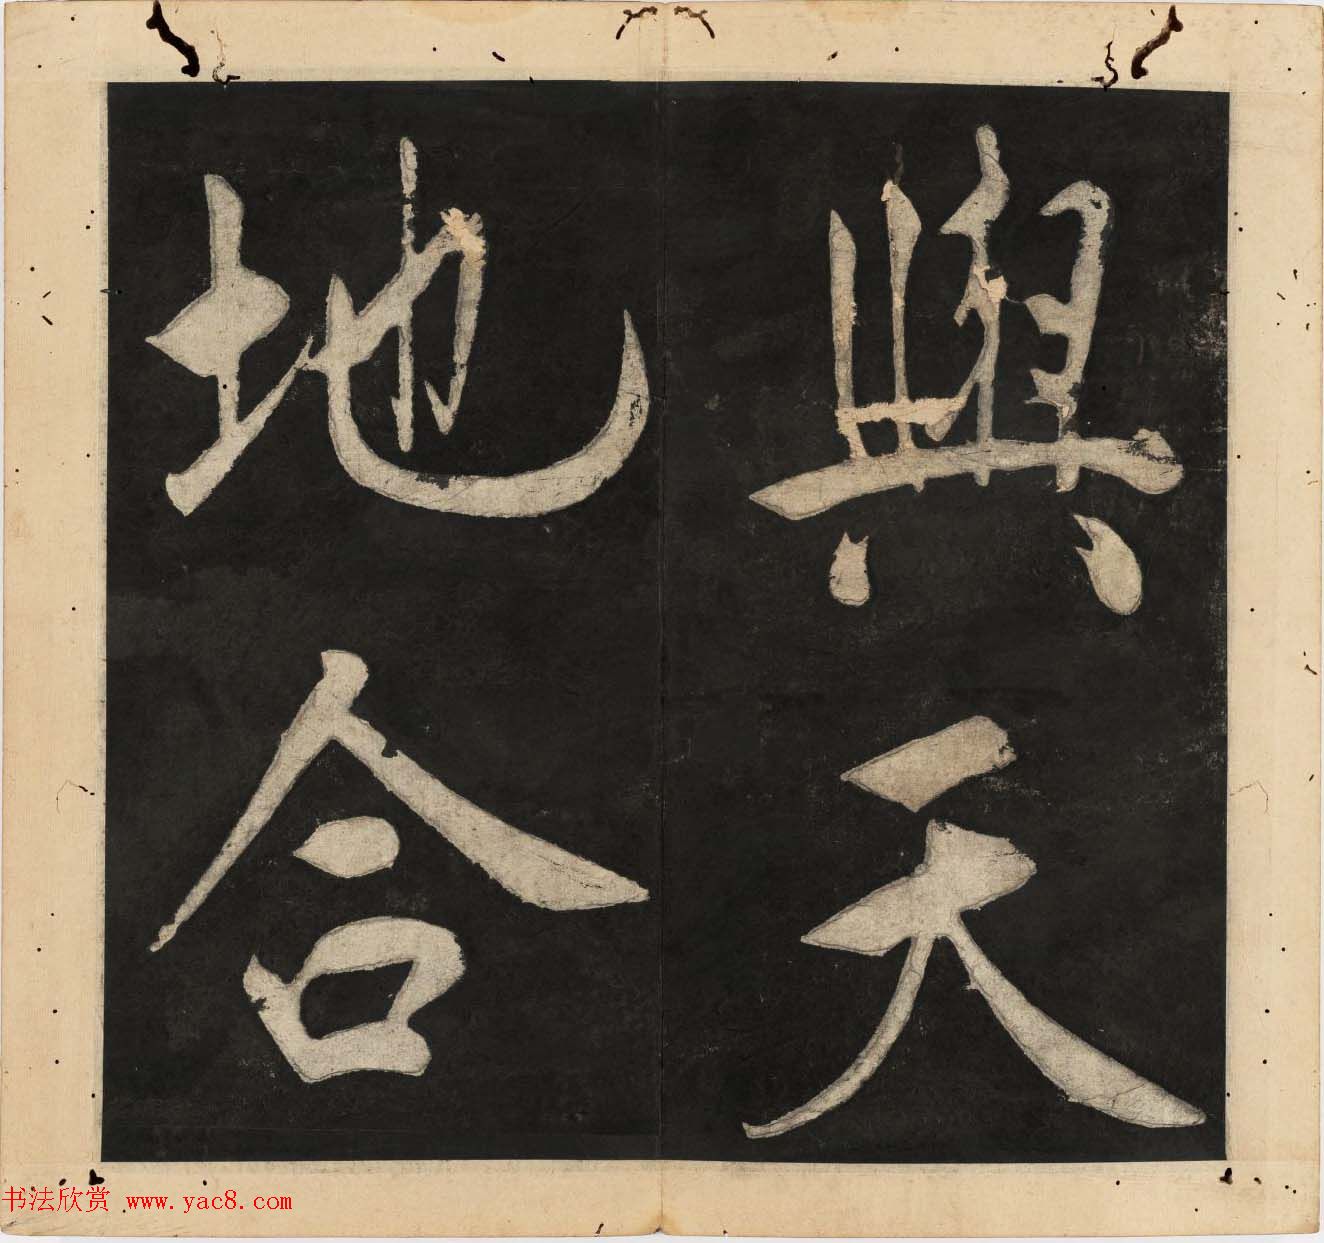 與天
地合
书法欣赏 www.yac8.com